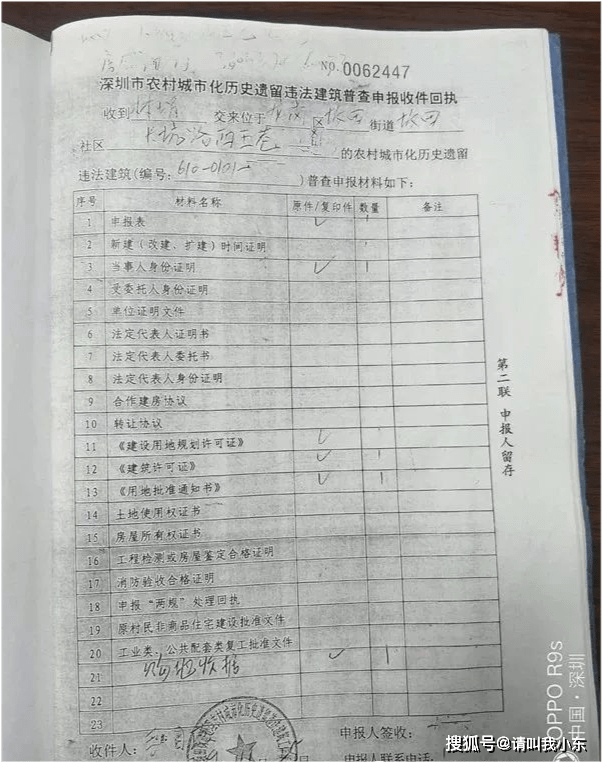 NO.0062447
深圳市农村城市化历史遗留违法建筑普查申报收件回执
收到 交来位于 区 坂田 街道 坂田
社区 的农村城市化历史遗留
违法建筑(编号: 610-0101 )普查申报材料如下:
序号 材料名称 原件/复印件 数量 备注
1 申报表 ✓ 1
2 新建(改建、扩建)时间证明
3 当事人身份证明 ✓ 1
4 受委托人身份证明
5 单位证明文件
6 法定代表人证明书
7 法定代表人委托书
8 法定代表人身份证明
9 合作建房协议
10 转让协议
11 《建设用地规划许可证》 ✓
12 《建筑许可证》 ✓ 1
13 《用地批准通知书》 ✓ 1
14 土地使用权证书
15 房屋所有权证书
16 工程检测或房屋鉴定合格证明
17 消防验收合格证明
18 申报“两规”处理回执
19 原村民非商品住宅建设批准文件
20 工业类、公共配套类复工批准文件
21 购地收据 ✓ 1
22
23
收件人: 申报人签收:
申报人联系电话:
第二联 申报人留存
OPPO R9s
中国·深圳
搜狐号@请叫我小东